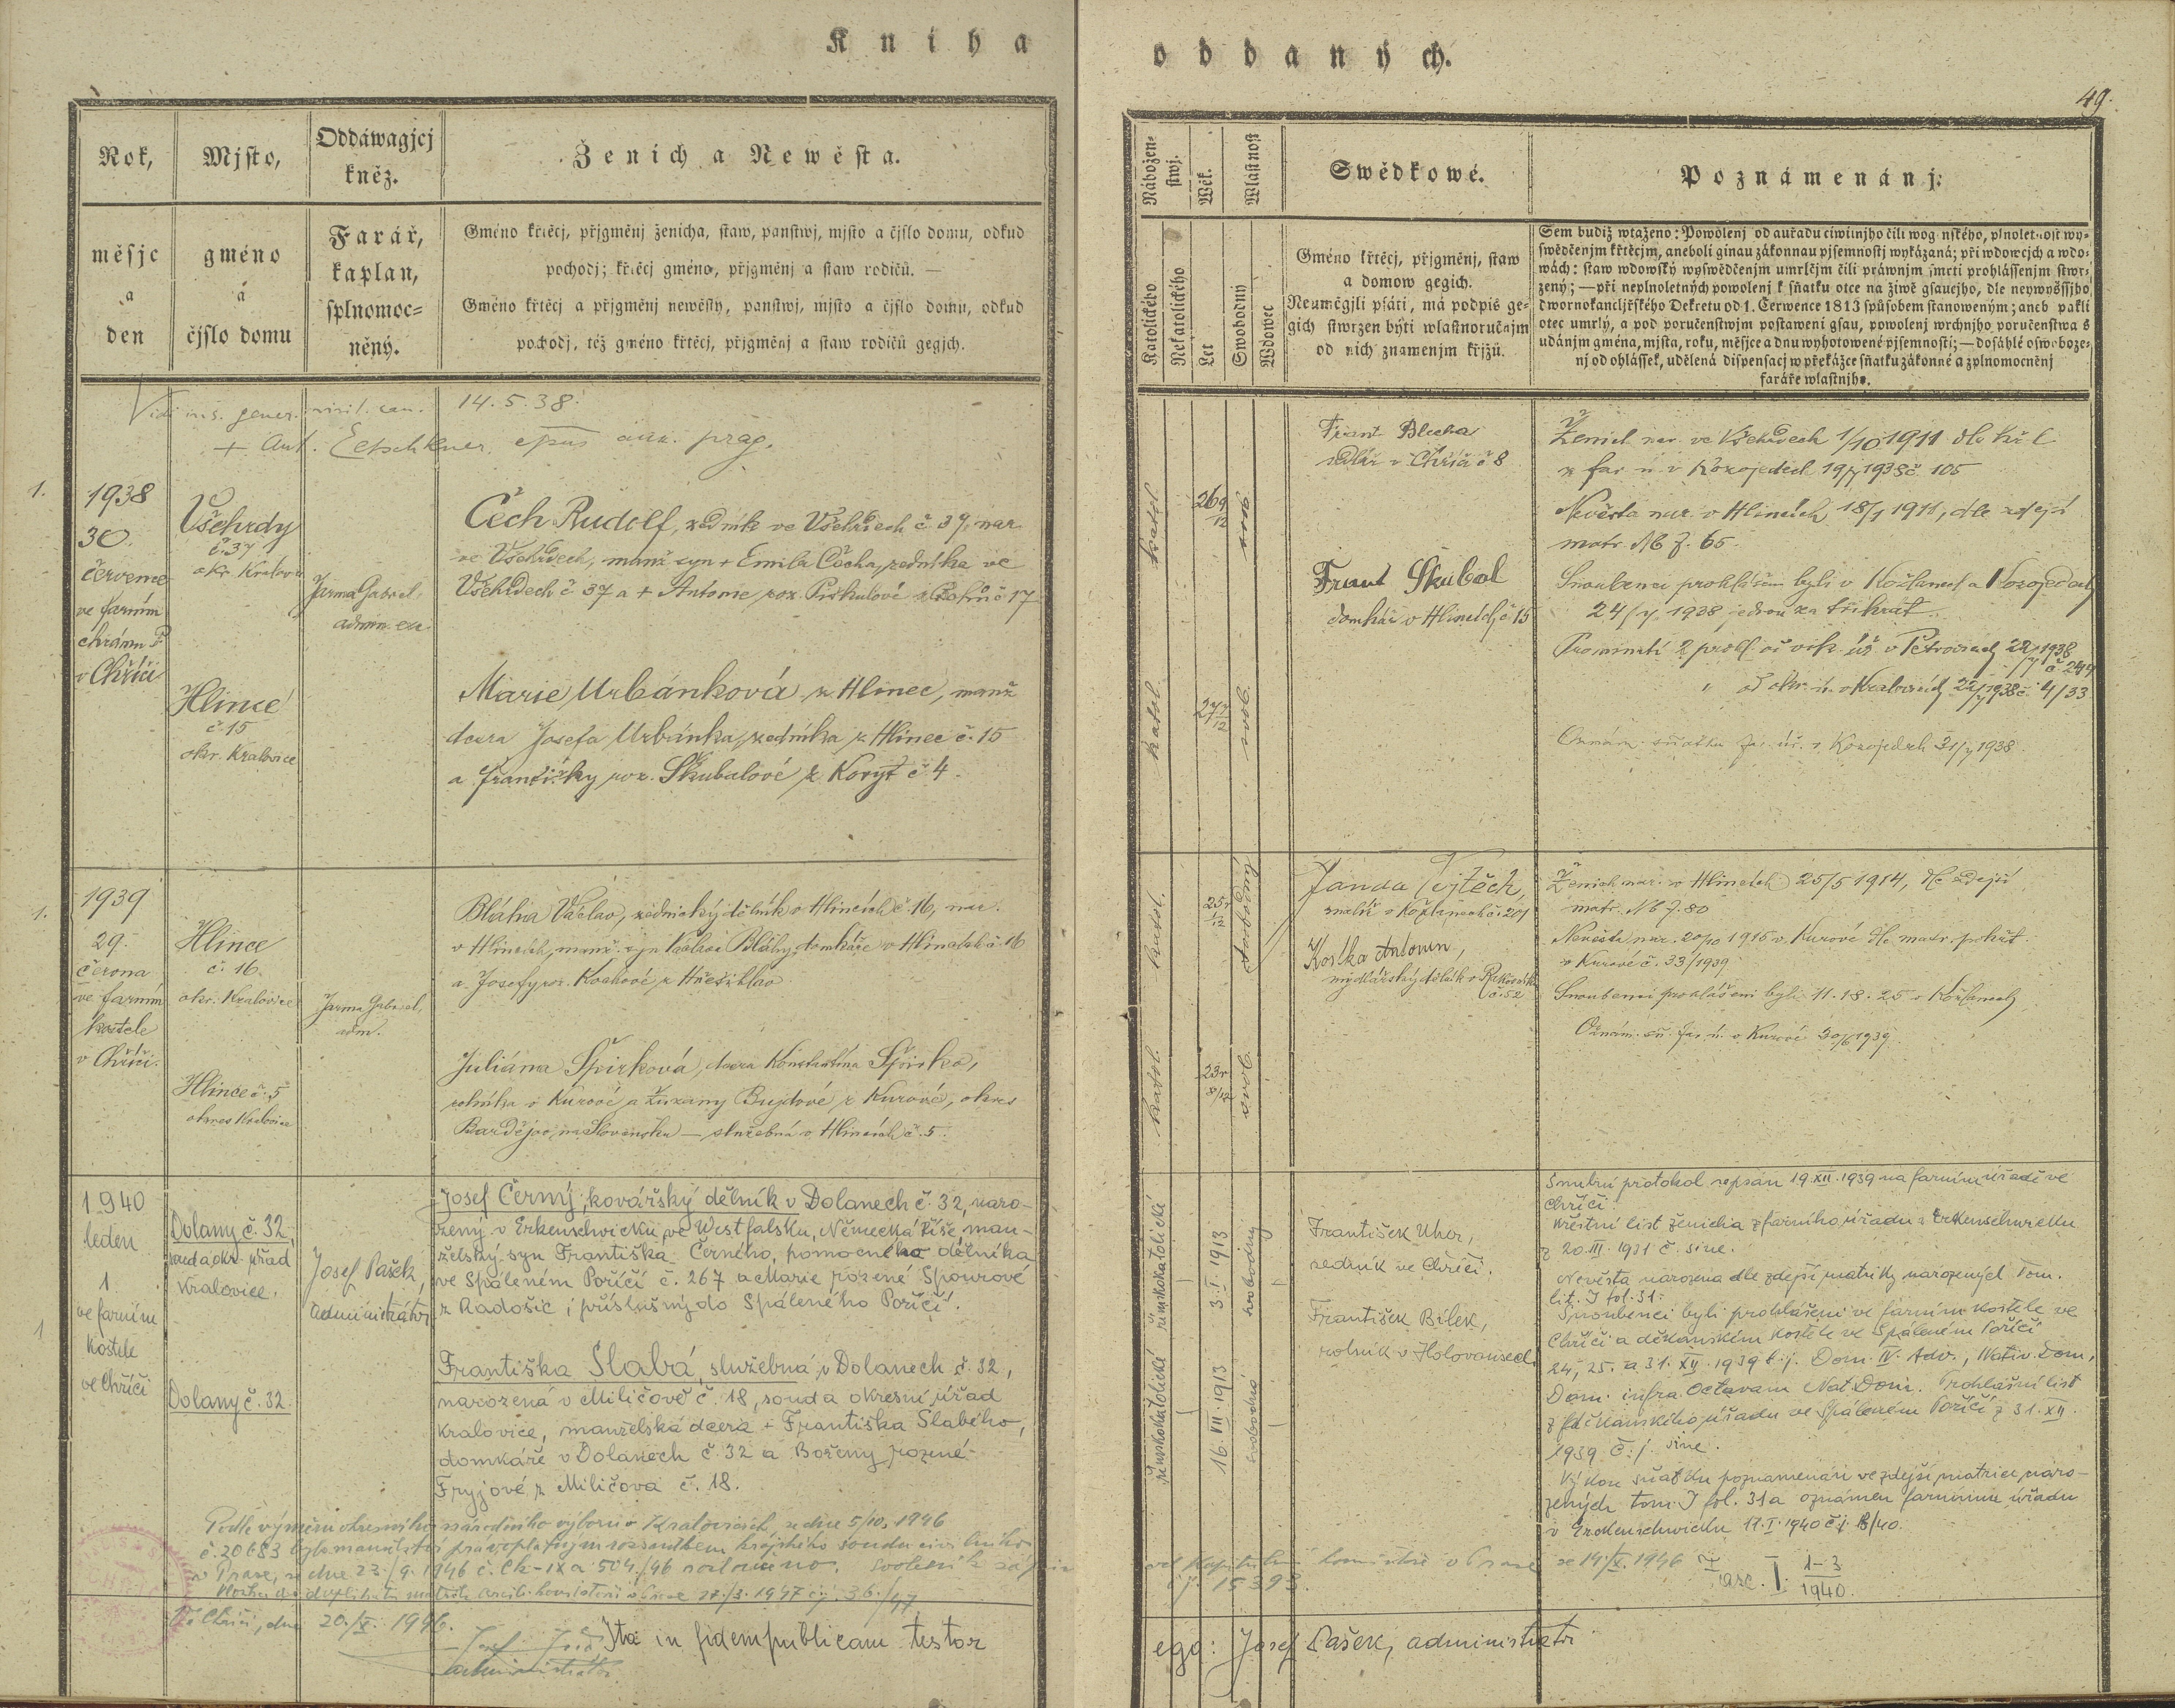 Kniha
Rok,
měsjc
a
den
Mjsto,
gméno
a
čjslo domu
Oddáwagjcj
kněz.
Farář,
kaplan,
splnomoc=
něný.
Ženich a Newěsta.
Gméno křtěcj, přjgměnj ženicha, staw, panstwj, mjsto a čjslo domu, odkud
pochodj; křtěcj gméno, přjgměnj a staw rodičů. —
Gméno křtěcj a přjgměnj newěsty, panstwj, mjsto a čjslo domu, odkud
pochodj, též gméno křtěcj, přjgměnj a staw rodičů gegjch.
14.5.38.
1.
1938
30.
července
ve farním
chrámu P
v Chříči
Všehrdy
č. 37
okr. Kralov
Hlince
č. 15
okr. Kralovice
Jarma Gabriel,
admin. exc.
Čech Rudolf, zedník ve Všehrdech č 37, nar.
ve Všehrdech, manž syn + Emila Čecha, zedníka ve
Všehrdech č 37 a + Antonie roz. Piskulové č 17
Marie Urbánková z Hlinec, manž
dcera Josefa Urbánka, zedníka z Hlinec č. 15
a Františky roz. Škubalové z Koryt č 4.
1.
1939
29.
června
ve farním
kostele
v Chříči.
Hlince
č. 16.
okr. Kralovice
Hlince č. 5
okres Kralovice
Jarma Gabriel,
adm.
Bláha Václav, zednický dělník v Hlincích č. 16, nar.
v Hlincích, manž. syn Václava Bláhy, domkáře v Hlincích č. 16
a Josefy roz. Kovhové z Hřešihlav
Juliána Špirková, dcera Konstantina Špirka,
rolníka v Kurově a Zuzany Bujdové z Kurově, okres
Bardějov na Slovensku — služebná v Hlincích č. 5.
1
1940
leden
1
ve farním
kostele
ve Chříči
Dolany č. 32,
soud a okr. úřad
Kralovice.
Dolany č. 32.
Josef Pašek,
administrátor
Josef Černý, kovářský dělník v Dolanech č. 32, naro-
zený v Erkenschwicku ve Westfalsku, Německá říše, man-
želský syn Františka Černého, pomocného dělníka
ve Spáleném Poříčí č. 267 a Marie rozené Spourové
z Radošic, příslušný do Spáleného Poříčí.
Františka Slabá, služebná v Dolanech č. 32,
narozená v Miličově č. 18, soud a okresní úřad
Kralovice, manželská dcera + Františka Slabého,
domkáře v Dolanech č. 32 a Boženy rozené
Fryjové z Miličova č. 18.
Podle výměru okresního národního výboru v Kralovicích ze dne 5/10. 1946
č. 20683 bylo manželství pravoplatným rozsudkem krajského soudu civilního
v Praze, ze dne 23./9. 1946 č. Ck-IXa 504/46 rozloučeno.
Ve Chříči, dne 20./X. 1946.
administrátor
Ita in fidem publicam testor
oddaných.
49.
Nábožen=
stwj.
Katolického
Nekatolického
Wěk.
Let
Wlastnost
Swobodný
Wdowec
Swědkowé.
Gméno křtěcj, přjgměnj, staw
a domow gegich.
Neumégjli psáti, má podpis ge=
gich stwrzen býti wlastnoručnjm
od nich znamenjm křjžů.
Poznámenánj:
Sem budiž wtaženo: Powolenj od auřadu ciwilnjho čili wogenského, plnoletnost wy=
swědčenjm křtěcjm, aneboli ginau zákonnau pjsemnostj wykázaná; při wdowcjch a wdo=
wách: staw wdowský wyswědčenjm umrlčjm čili práwnjm smrti prohlássenjm stwr=
zený; — při neplnoletných powolenj k sňatku otce na žiwě gsaucjho, dle neywyššjho
dwornokancljřského Dekretu od 1. Čerwence 1813 spůsobem stanoweným; aneb pakli
otec umrlý, a pod poručenstwjm postaweni gsau, powolenj wrchnjho poručenstwa s
udánjm gména, mjsta, roku, měsjce a dnu wyhotowené pjsemnosti; — dosáhlé oswoboze=
nj od ohlássek, udělená dispensacj w překážce sňatku zákonné a zplnomocněnj
faráře wlastnjho.
katol.
26 9/12
svob
Frant Blecha
sedlář v Chříči č 8
Frant Škubal
domkář v Hlincích č 15
katol.
27 7/12
svob.
Ženich nar. ve Všehrdech 1/10 1911 dle kř. l.
z far. ú. v Kozojedech 19/7 1938 č. 105
Nevěsta nar. v Hlincích 18/1 1911, dle zdejší
matr. N6 f. 65.
Snoubenci prohlášeni byli v Kožlanech a Kozojedech
24/7 1938 jednou za třikrát.
Prominutí 2 prohl. od ok. úř. v Kralovicích 22/7 1938 č. 4/33
Oznám. sňatku far. úř. v Kozojedech 31/7 1938.
katol.
25 r 1/12
svobodný
Janda Vojtěch,
rolník v Kožlanech č. 201
Kostka Antonín,
mydlářský dělník v Rakovníku
č. 52
katol.
23 r 8/12
svob.
Ženich nar. v Hlincích 25/5 1914, dle zdejší
matr. N6 f. 80
Nevěsta nar. 20/10 1915 v Kurově dle matr. pokřt.
v Kurově č. 33/1939
Snoubenci prohlášeni byli 11. 18. 25. v Kožlanech
Oznám. sň. far. ú. v Kurově 30/6 1939.
římskokatolické
3. I. 1913
svobodný
František Uher,
zedník ve Chříči.
František Bílek,
rolník v Holovousech
římskokatolické
16. VII. 1913
svobodná
Snubní protokol sepsán 19. XII. 1939 na farním úřadě ve
Chříči.
Křestní list ženicha z farního úřadu z Erkenschwicku
z 20. III. 1931 č. sine.
Nevěsta narozena dle zdejší matriky narozených Tom.
lit. J fol. 31.
Snoubenci byli prohlášeni ve farním kostele ve
Chříči a děkanském kostele ve Spáleném Poříčí
24, 25. a 31. XII. 1939 t. j. Dom. IV. Adv., Nativ. Dom.,
Dom. infra Octavam Nat. Dom. Prohlašní list
z děkanského úřadu ve Spáleném Poříčí z 31. XII.
1939 č. j. sine.
Výkon sňatku poznamenán ve zdejší matrice naro-
zených tom. J fol. 31 a oznámen farnímu úřadu
v Erkenschwicku 11. I. 1940 č. j. 8/40.
v Praze ze 14./X. 1946
č. j. 15393.
Fasc. I. 1-3/1940.
ego: Josef Pašek, administrátor